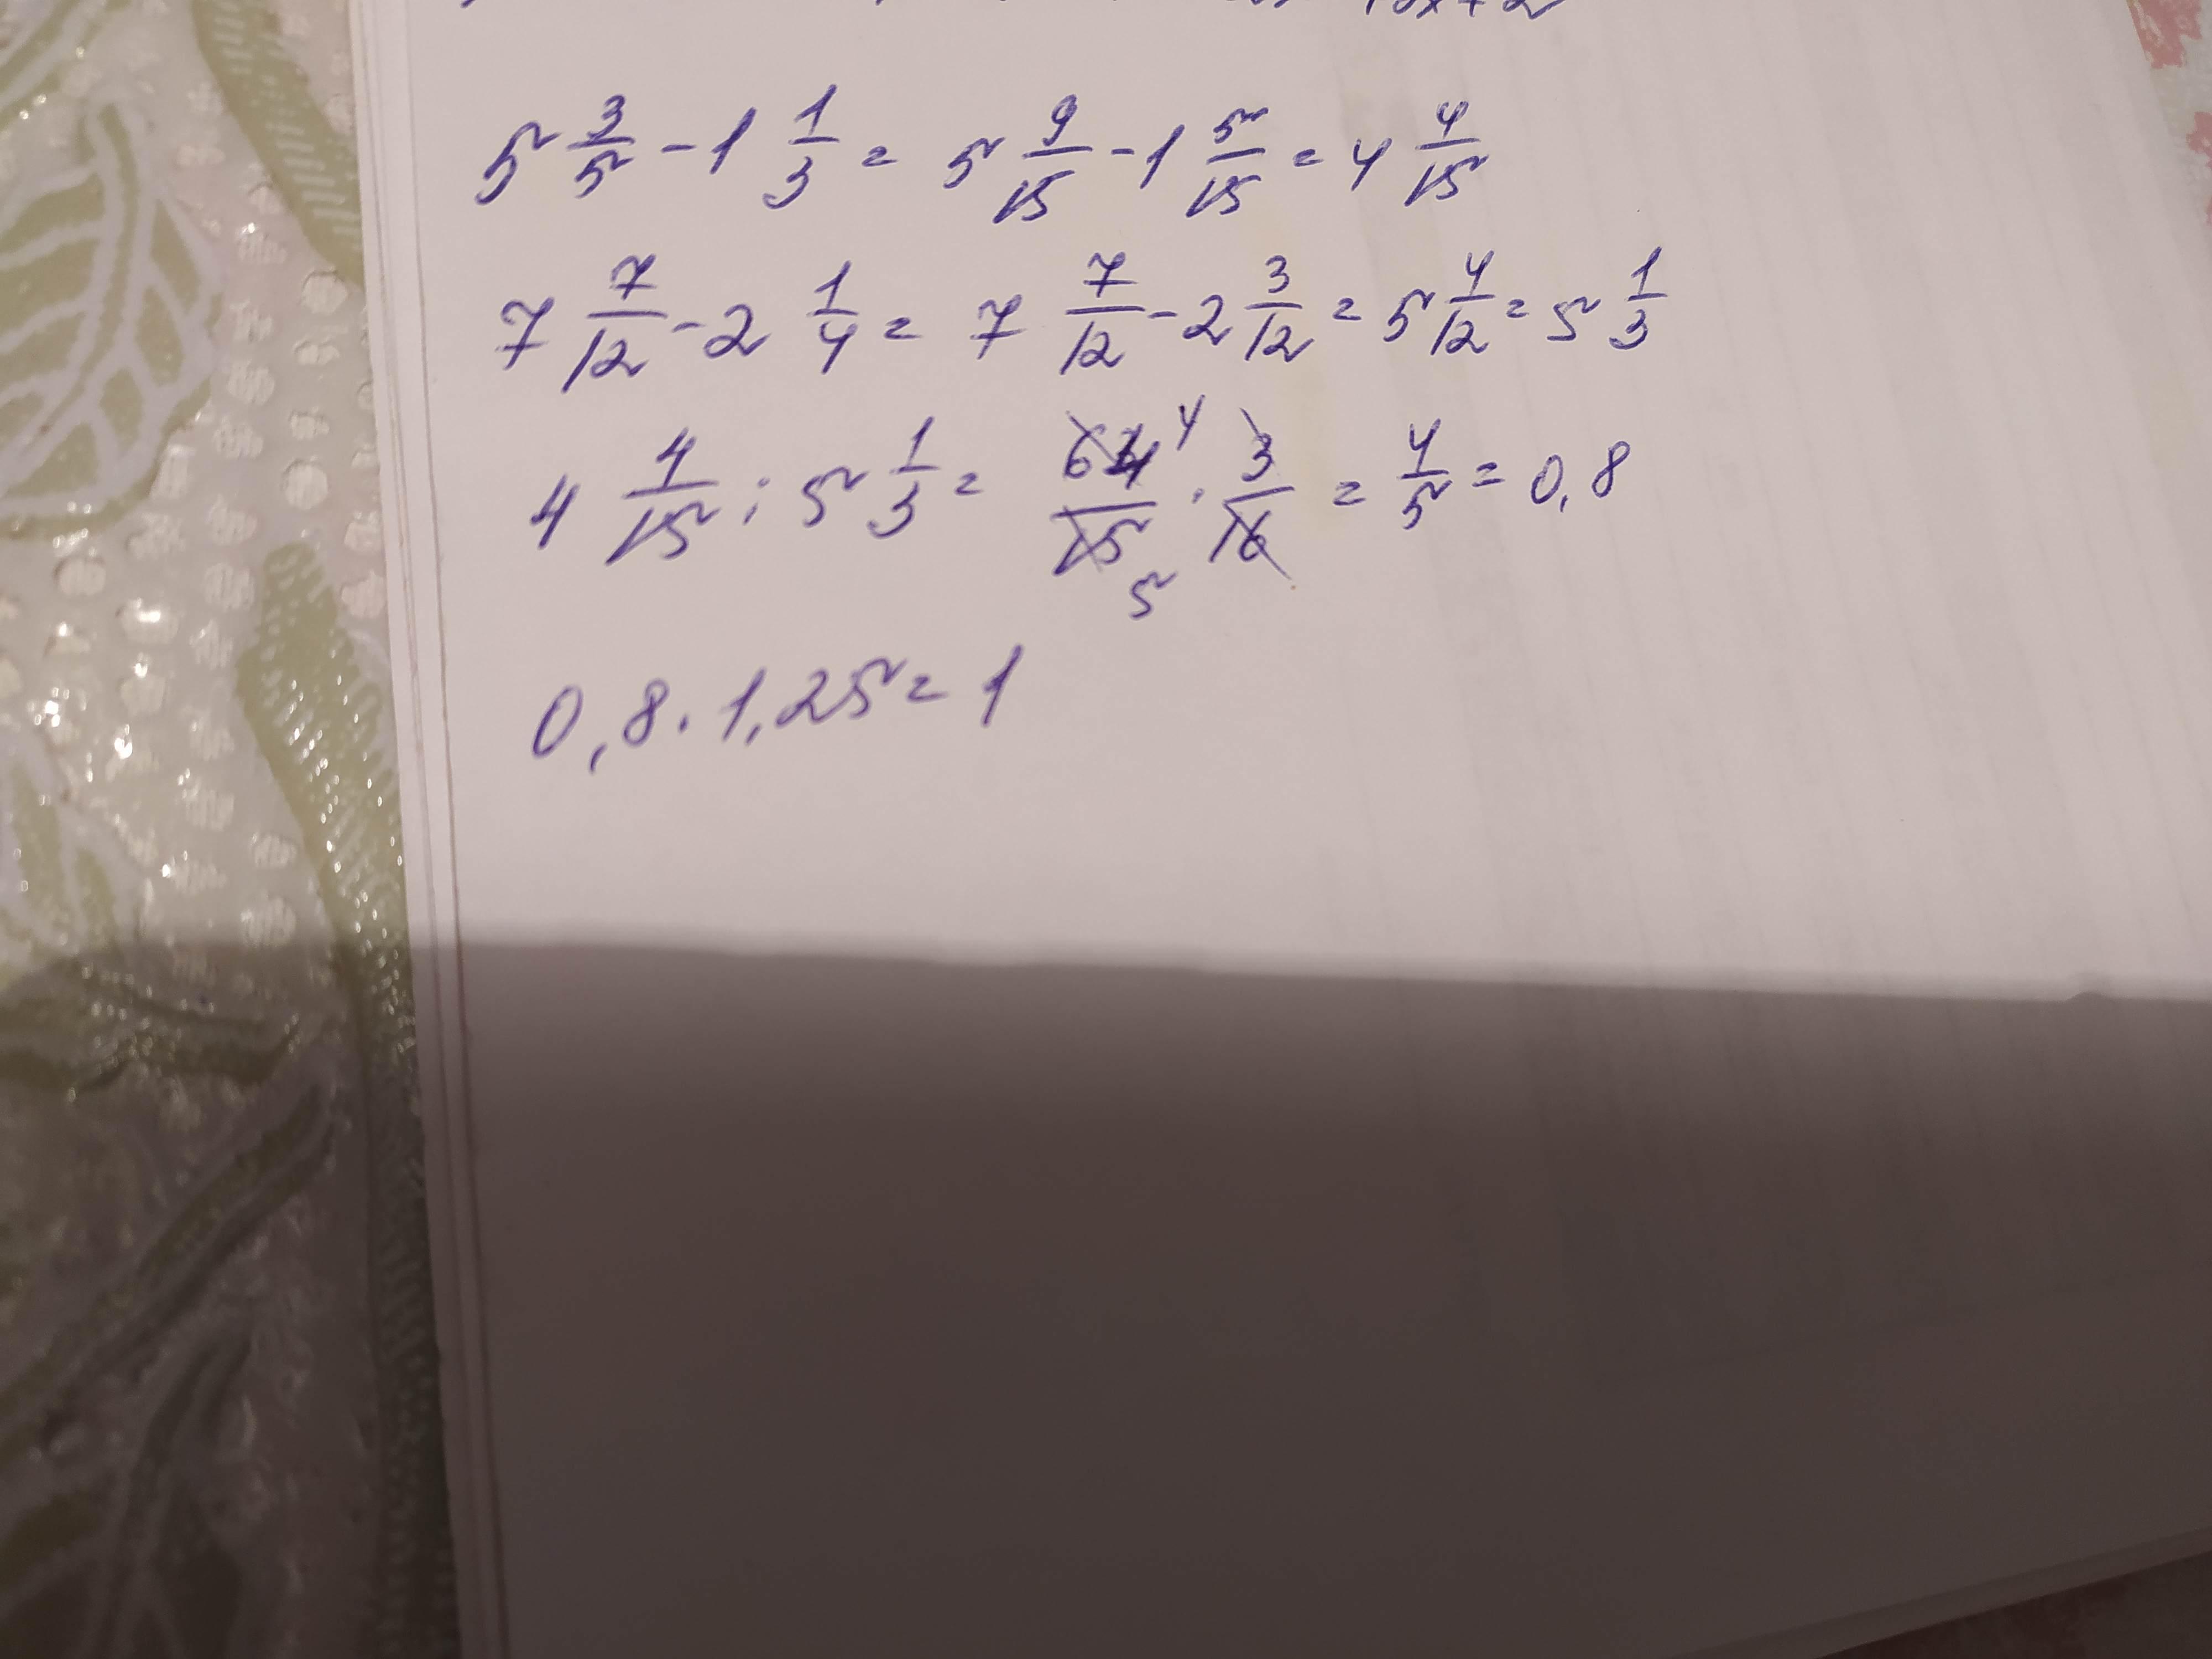 5 3/5 - 1 1/3 = 5 9/15 - 1 5/15 = 4 4/15
7 7/12 - 2 1/4 = 7 7/12 - 2 3/12 = 5 4/12 = 5 1/3
4 4/15 : 5 1/3 = 64/15 4 5 · 3/16 = 4/5 = 0,8
0,8 · 1,25 = 1